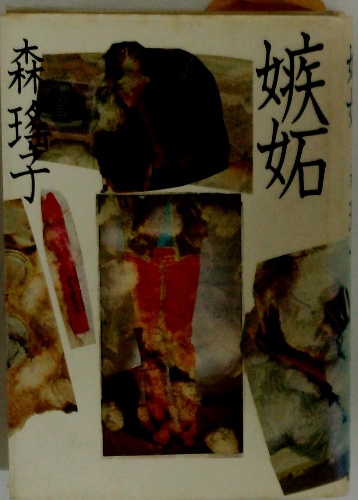 嫉妬
森瑤子